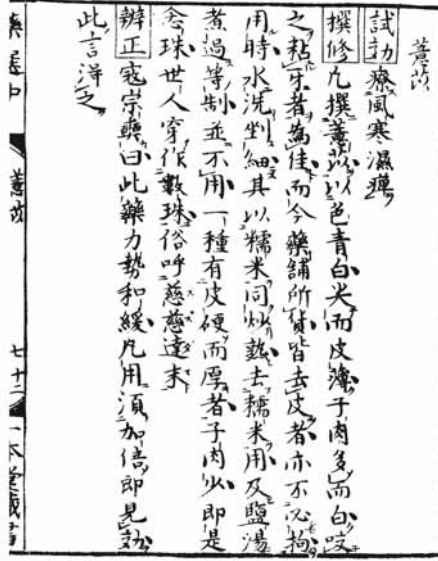 薏苡
試効療風寒濕痺
撰修凡撰薏苡以色青白尖而皮薄子肉多而白咬
之粘牙者為佳而今藥舖所貨皆去皮者亦不必拘
用時水洗剉細其以糯米同炒熟去糯米用及鹽湯
煮過等制並不用一種有皮硬而厚者子肉少即是
念珠世人穿作數珠俗呼慈慈達末
辨正寇宗奭曰此藥力勢和緩凡用須加倍即見効
此言得之
薏苡
七十二
一本堂藏書